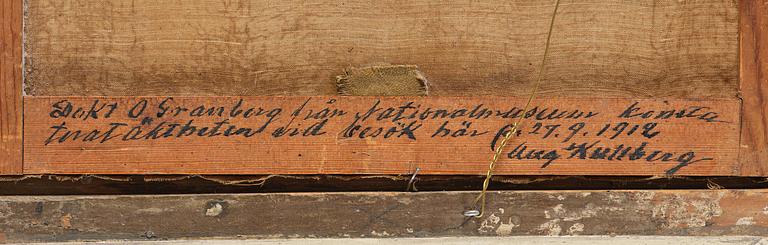 Dokt O Granberg från Nationalmuseum konsta
terat äktheten vid besök här d. 27.9.1912
Aug Kullberg